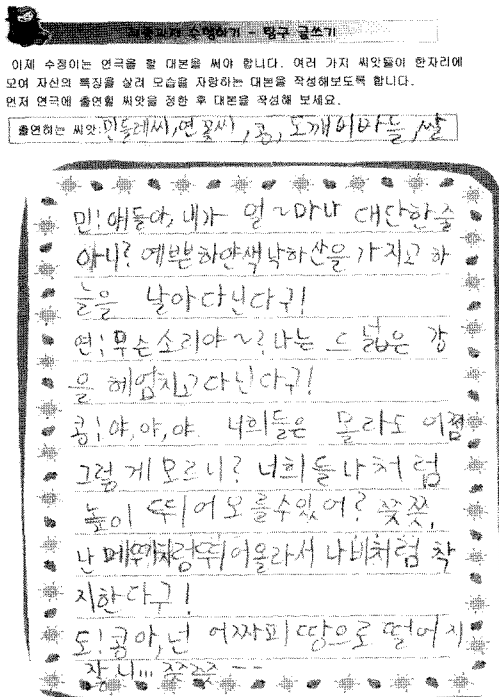 수행하기 - 탐구 글쓰기
이제 수정이는 연극을 할 대본을 써야 합니다. 여러 가지 씨앗들이 한자리에
모여 자신의 특징을 살려 모습을 자랑하는 대본을 작성해보도록 합니다.
먼저 연극에 출연할 씨앗을 정한 후 대본을 작성해 보세요.
출연하는 씨앗: 민들레씨, 연꽃씨, 콩, 도깨비바늘, 쌀
민: 애들아, 내가 얼~마나 대단한줄
아니? 예쁜 하얀색낙하산을 가지고 하
늘을 날아다닌다구!
연: 무슨소리야~? 나는 드넓은 강
을 헤엄치고다닌다구!
콩: 야, 야, 야. 너희들은 몰라도 어쩜
그렇게모르니? 너희들 나처럼
높이 뛰어오를수있어? 쯧쯧,
난 메뚜기처럼뛰어올라서 나비처럼 착
지한다구!
도: 콩아, 넌 어짜피 땅으로 떨어지
잖니... 쯧쯧쯧--